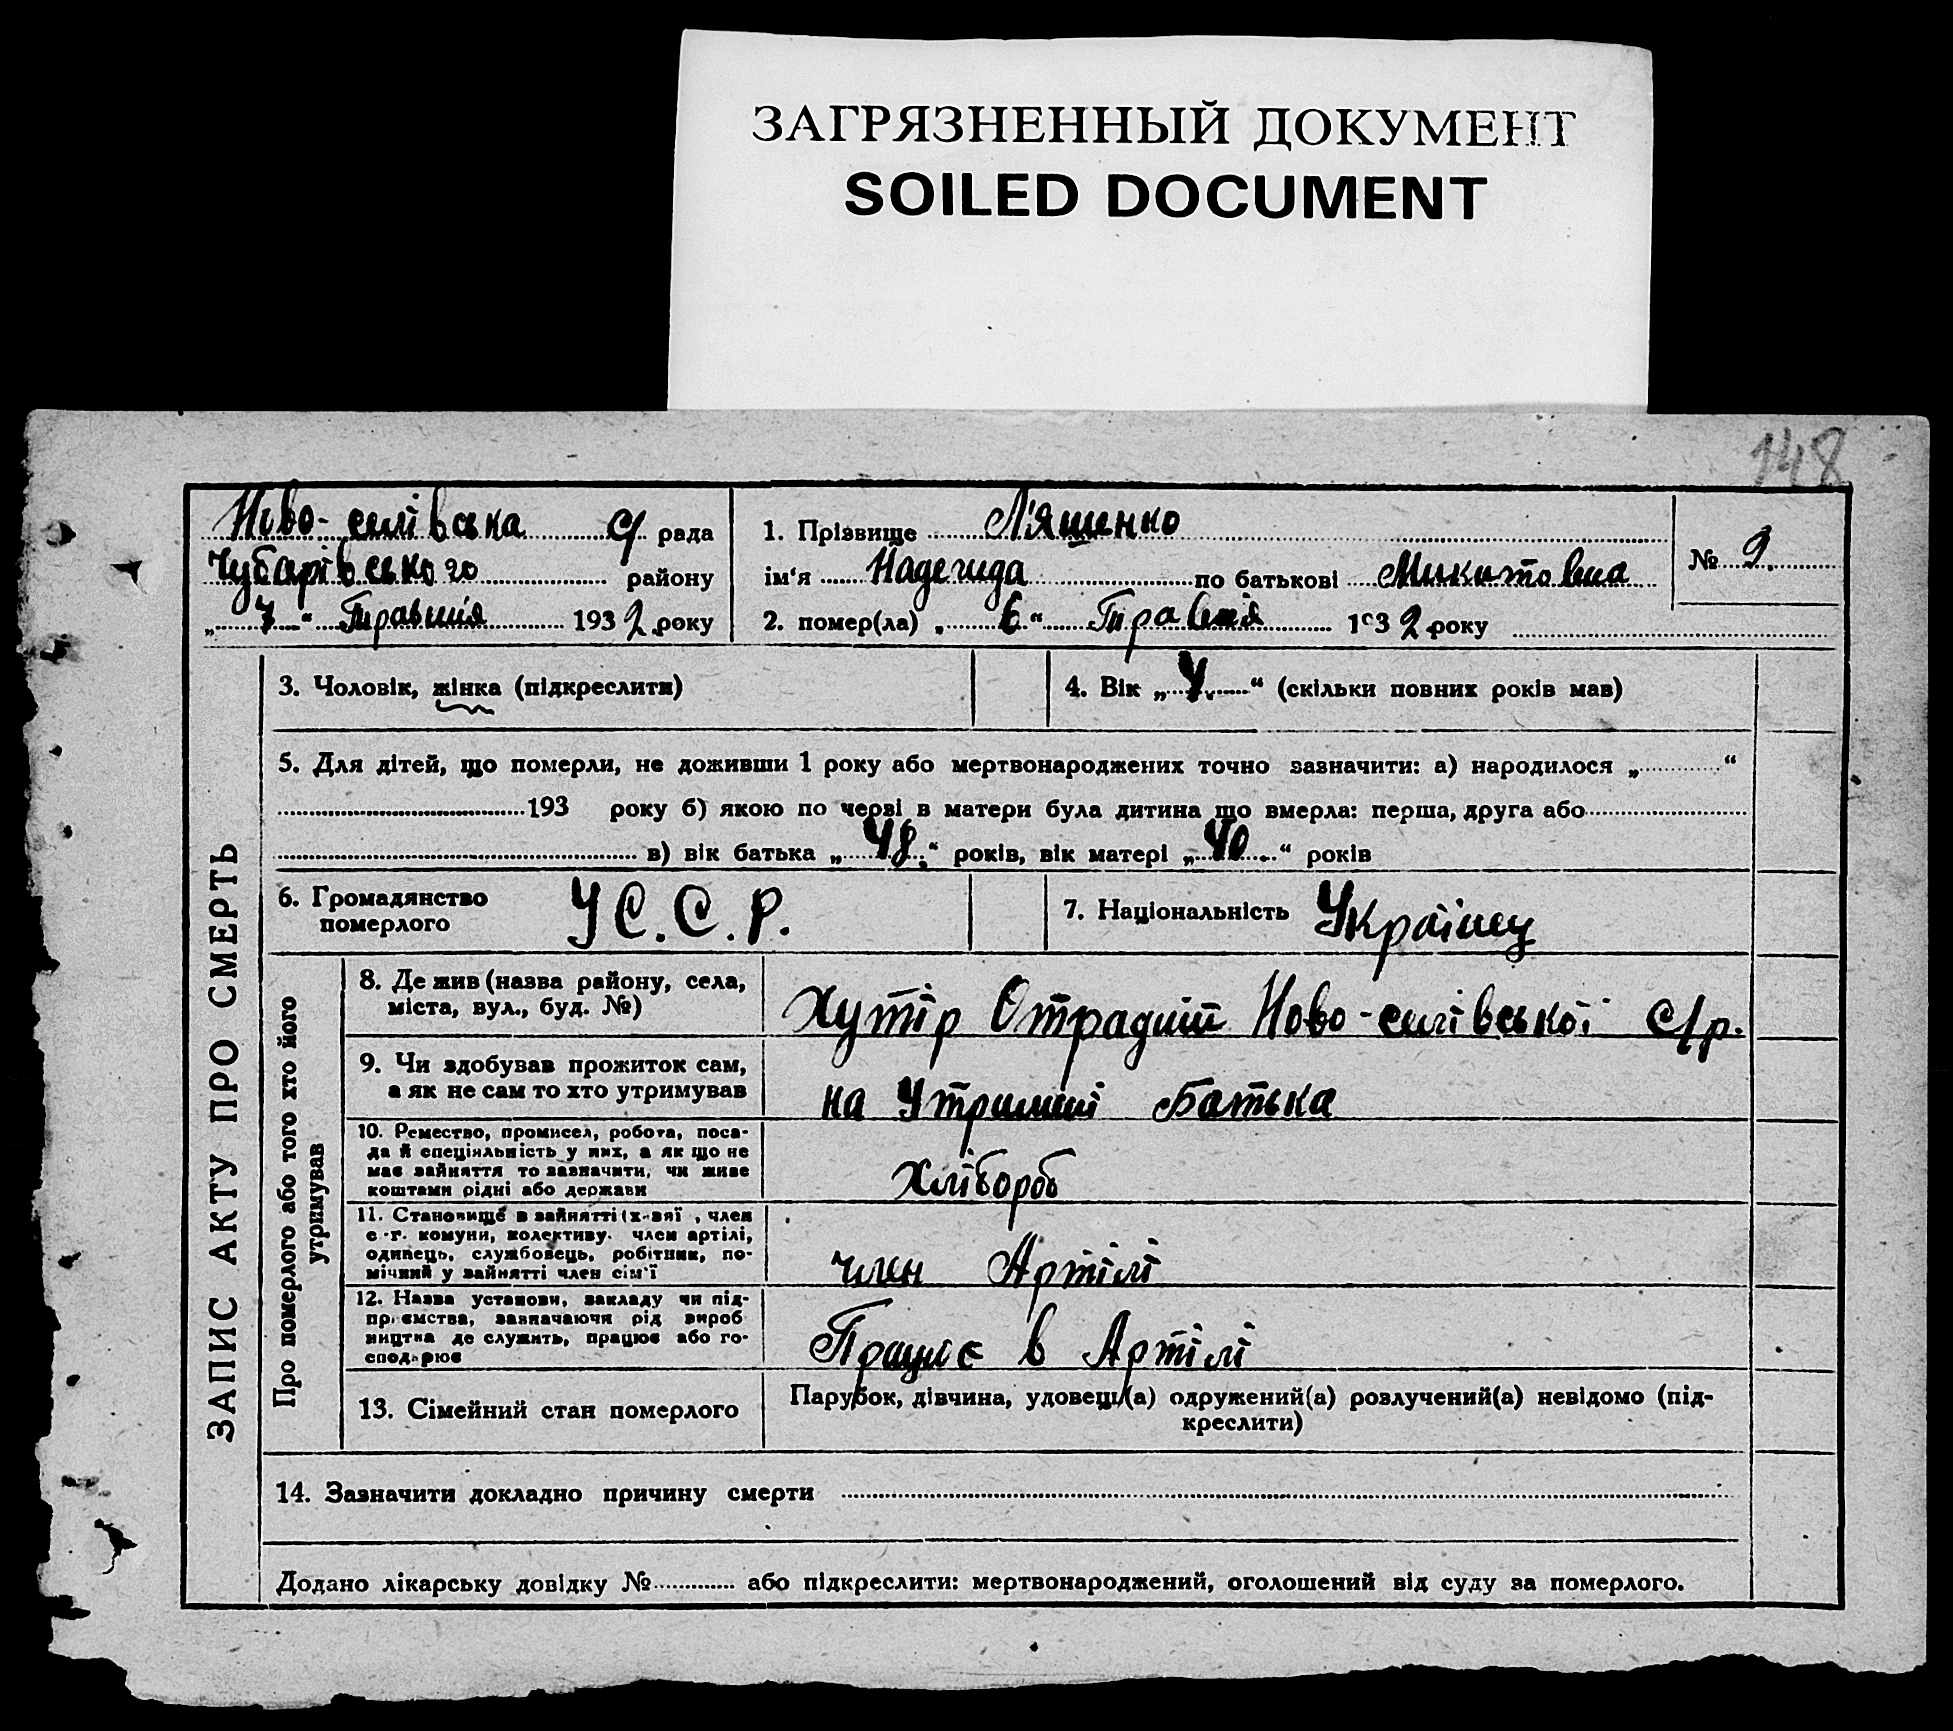 ЗАГРЯЗНЕННЫЙ ДОКУМЕНТ
SOILED DOCUMENT
148
Ново-селівська с/ рада
Чубарівського району
„ 7 “ Травня 1932 року
1. Прізвище Ляшенко
ім‘я Надегида по батькові Микитовна
2. помер(ла) „ 6 “ Травня 1932 року
№ 9.
ЗАПИС АКТУ ПРО СМЕРТЬ
3. Чоловік, жінка (підкреслити)
4. Вік „ 4. “ (скільки повних років мав)
5. Для дітей, що померли, не доживши 1 року або мертвонароджених точно зазначити: а) народилося „ “
193 року б) якою по черві в матери була дитина що вмерла: перша, друга або
в) вік батька „ 48. “ років, вік матері „ 40 “ років
6. Громадянство
померлого
У С.С.Р.
7. Національність Українц
Про померлого або того хто його
утримував
8. Де жив (назва району, села,
міста, вул., буд. №)
Хутір Отрадній Ново-селівської с/р.
9. Чи здобував прожиток сам,
а як не сам то хто утримував
на Утримані Батька
10. Ремество, промисел, робота, поса-
да й спеціяльність у них, а як що не
має зайняття то зазначити, чи живе
коштами рідні або держави
Хліборб
11. Становище в зайнятті (х-вяї , член
с -г. комуни, колективу. член артілі,
одинець, службовець, робітник, по-
мічний у зайнятті член сім‘ї
член Артілі
12. Назва установи, закладу чи під-
приємства, зазначаючи рід вироб
ництва де служить, працює або го-
сподарює
Працює в Артілі
13. Сімейний стан померлого
Парубок, дівчина, удовець(а) одружений(а) розлучений(а) невідомо (під-
креслити)
14. Зазначити докладно причину смерти
Додано лікарську довідку № або підкреслити: мертвонароджений, оголошений від суду за померлого.